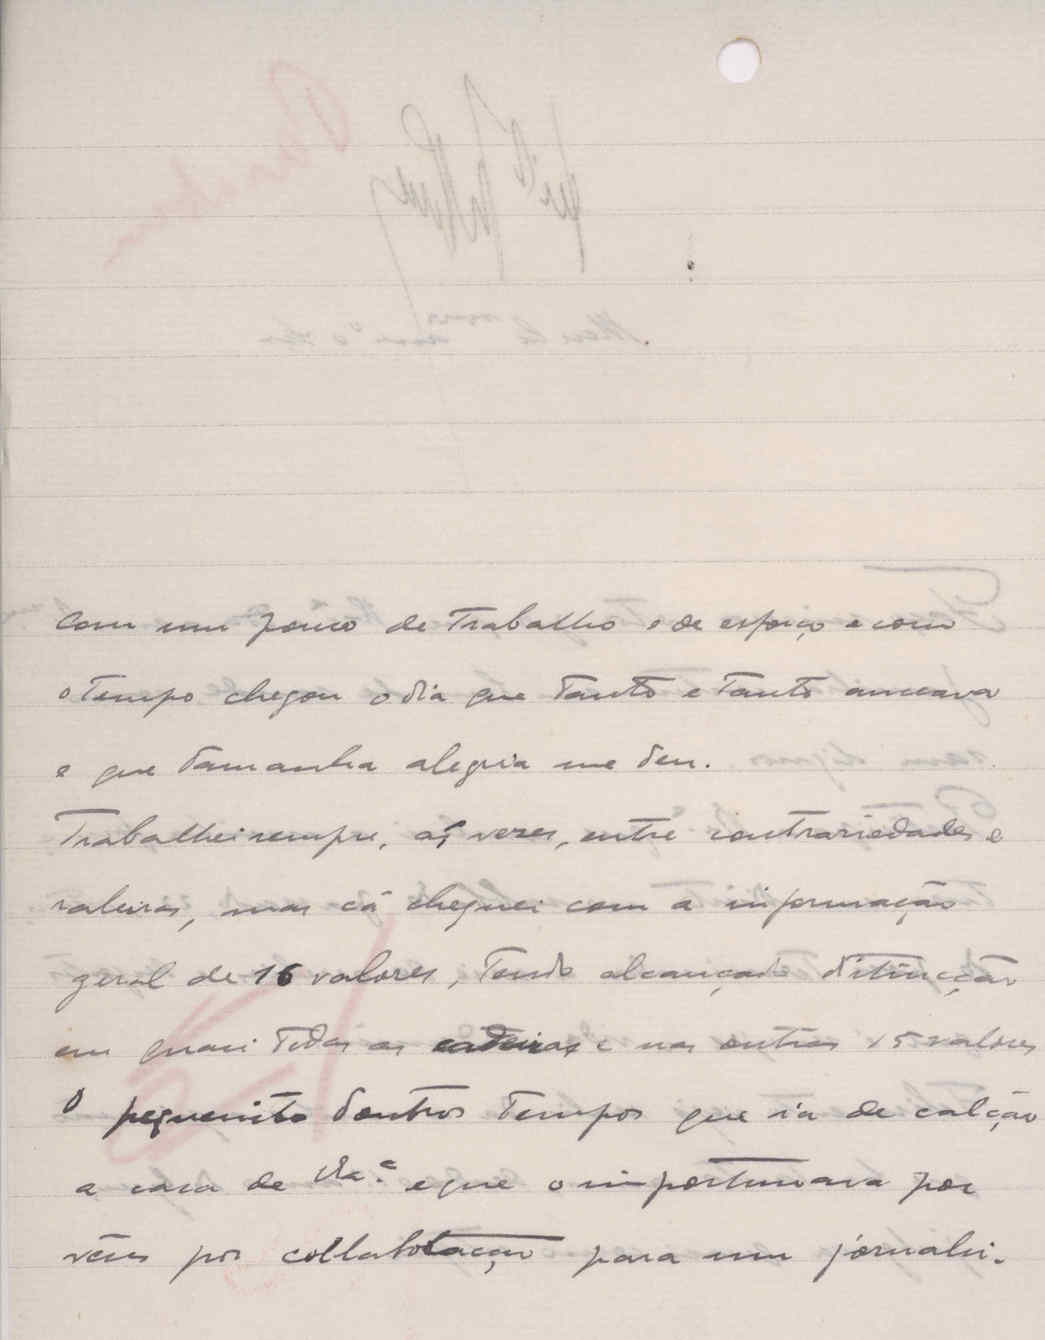 Com um pouco de trabalho e de esforço e com
o tempo chegou o dia que tanto e tanto anceava
e que tamanha alegria me deu.
Trabalhei sempre, ás vezes, entre contrariedades e
mas cá cheguei com a informação
geral de 16 valores, tendo alcançado distincção
em quasi todas as cadeiras e nas outras 15 valores
O pequenito doutros tempos que ia de calção
a casa de V. Ex.ª e que o importunava por
vezes por collaboração para um jornalsi-